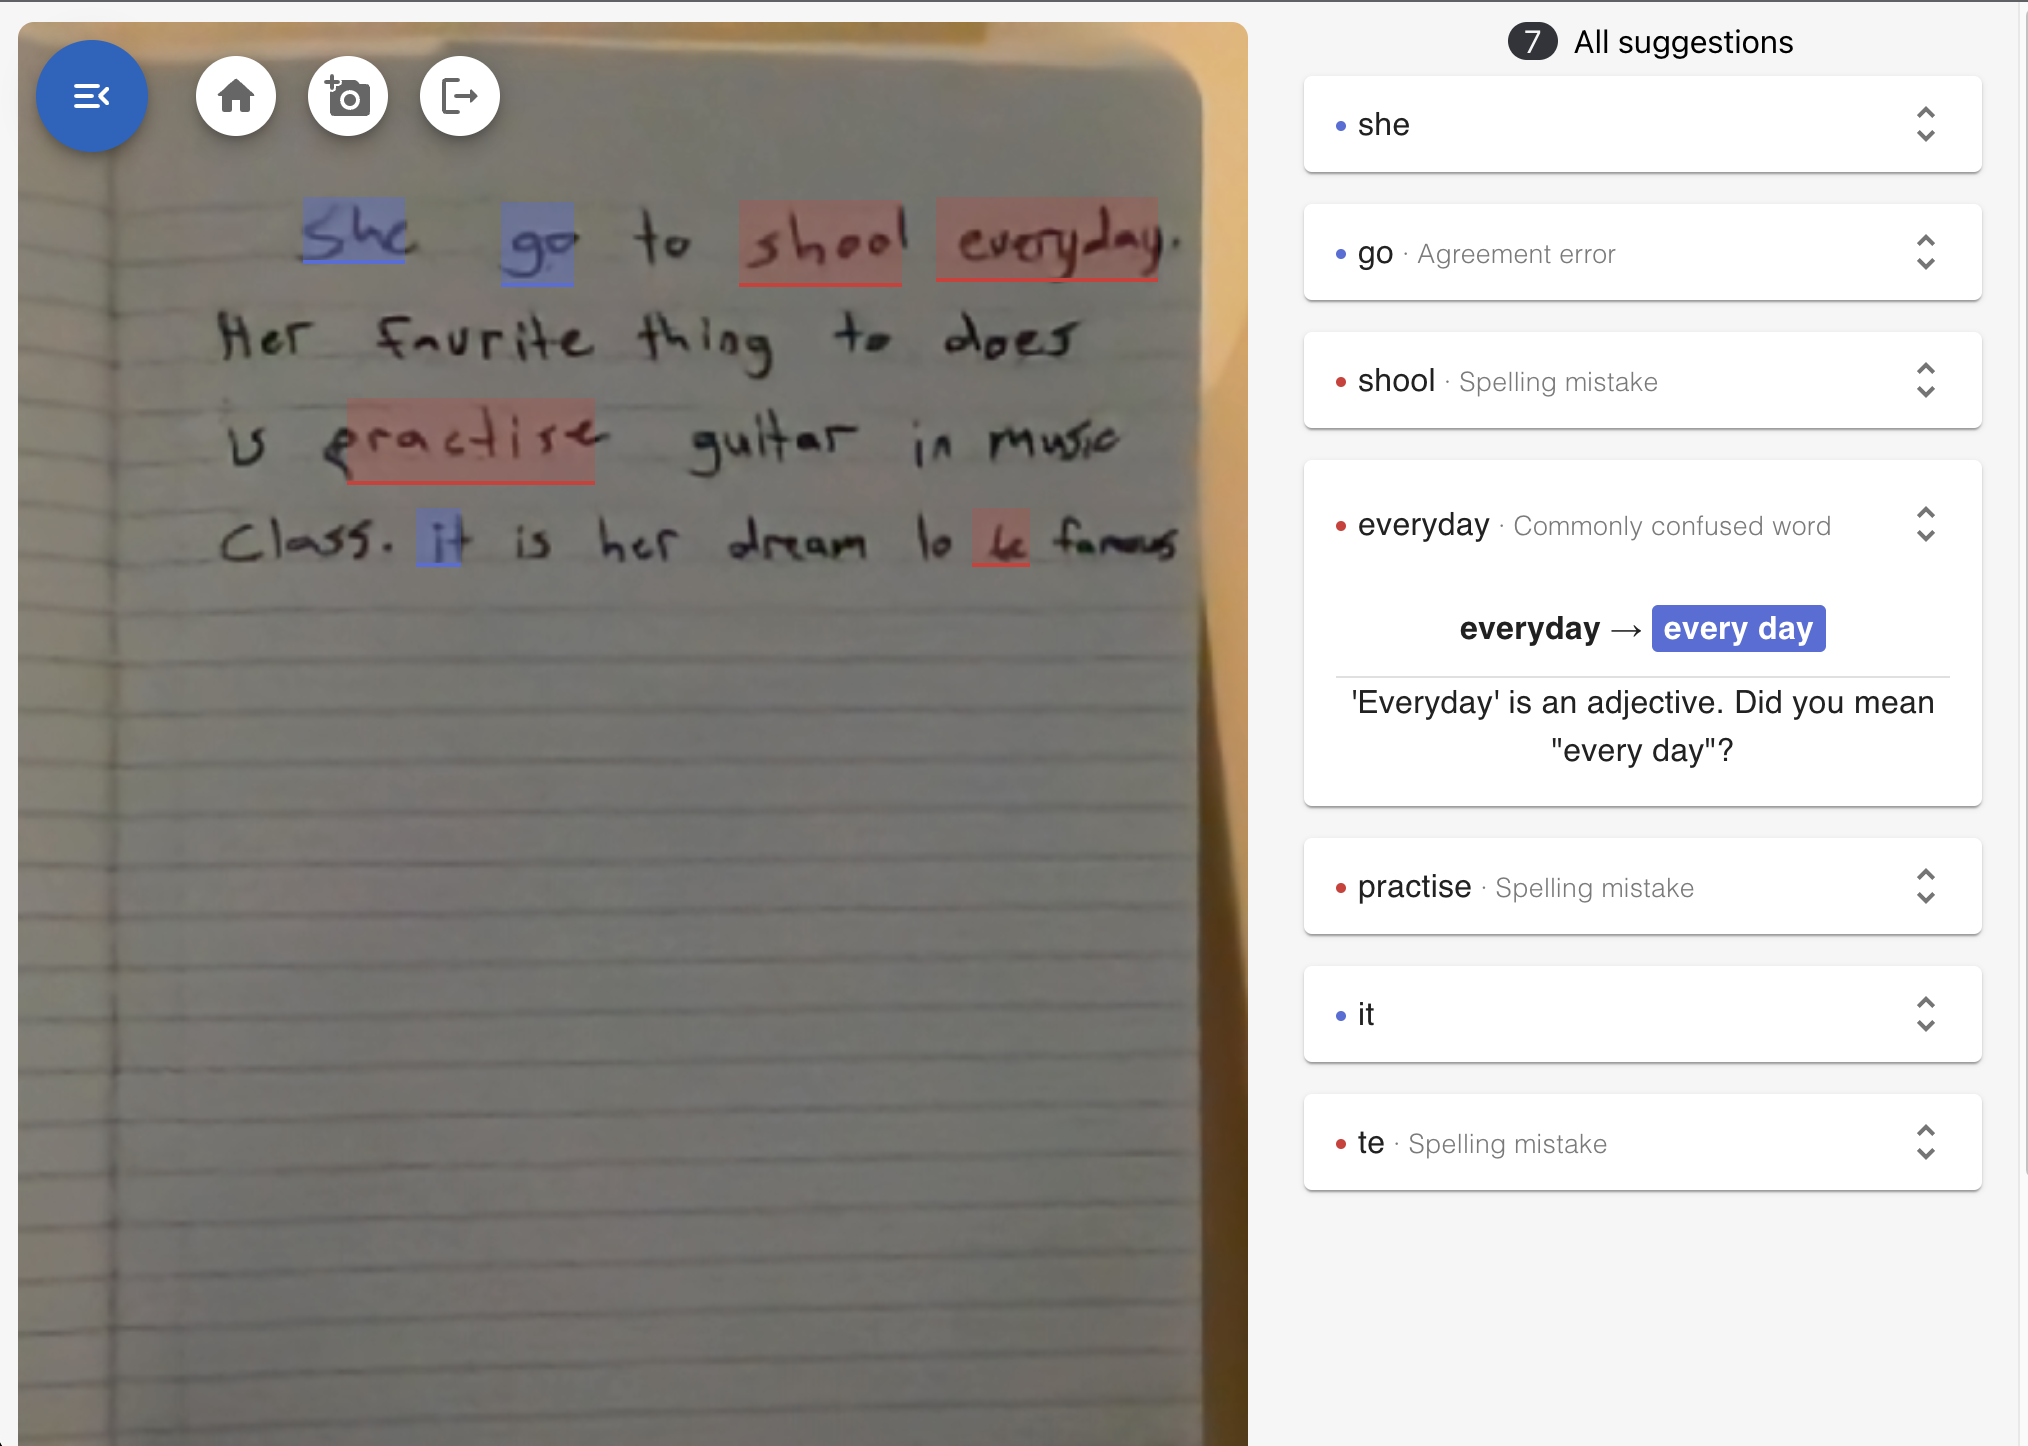 7 All suggestions
she go to shool everyday.
Her favrite thing to does
is practise guitar in music
Class. it is her dream to be famous
she
go · Agreement error
shool · Spelling mistake
everyday · Commonly confused word
everyday → every day
'Everyday' is an adjective. Did you mean
"every day"?
practise · Spelling mistake
it
te · Spelling mistake